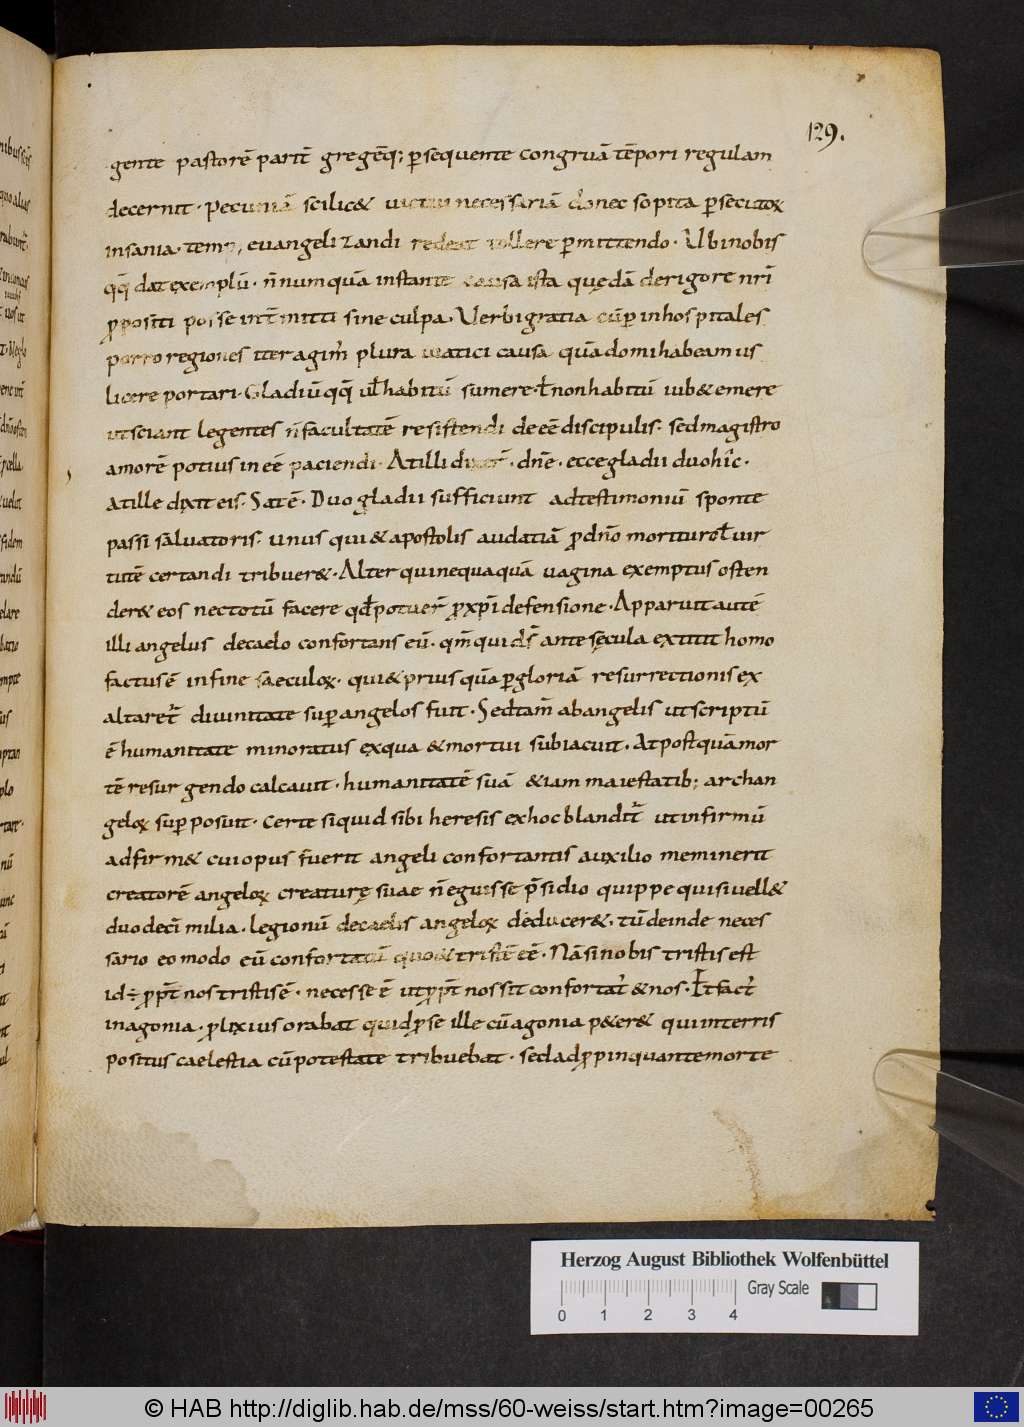 129.
gente pastorē parit̄ gregēq; ꝑsequente congruā tēpori regulam
decernit. Pecuniā scilic& uictui necessariā donec sopita ꝑsecutoꝝ
insania. temp; euangelizandi redeat tollere ꝑmittendo. Ubi nobis
qq̄ dat exemplū. n̄numquā instante causa ista quędā de rigore nr̄i
ꝓpositi posse int̄mitti sine culpa. Uerbi gratia cū ꝑ inhospitales
porro regiones iter agim̄ plura uiatici causa quā domi habeamus
licere portari. Gladiū qq̄ ł habitū sumere. ł non habitū iub& emere
ut sciant legentes n̄ facultatē resistendi deeē discipulis. sed magistro
amorē potius ineē paciendi. At illi dixer̄. dn̄e. ecce gladii duo hîc.
At ille dixit eis. Sat ē. Duo gladii sufficiunt ad testimoniū sponte
passi saluatoris. unus qui & apostolis audatiā ꝓ dn̄o morituro ł uir
tutē certandi tribuer&. Alter qui nequaquā uagina exemptus osten
der& eos nec totū facere qđ potuer̄ ꝓ xp̄i defensione. Apparuit autē
illi angelus de caelo confortans eū. qm̄ qui ds̄ ante sęcula extitit homo
factus ē in fine saeculoꝝ. qui & prius quā ꝑ gloriā resurrectionis ex
altaret᷑ diuinitate suꝑ angelos fuit. Sed tam̄ ab angelis ut scriptū
ē humanitate minoratus ex qua & mortui subiacuit. At postquā mor
tē resurgendo calcauit. humanitatē suā &iam maiestatib; archan
geloꝝ suꝑposuit. Certe siquid sibi heresis ex hoc blandit᷑ ut infirmū
adfirm& cui opus fuerit angeli confortantis auxilio meminerit
creatorē angeloꝝ creaturę suae n̄ eguisse p̄sidio quippe qui si uell&
duodecī milia. legionū de caelis angeloꝝ deducer&. tū deinde neces
sario eo modo eū confortatū quo & tristē eē. Nā si nobis tristis est
id÷ ꝓpt̄ nos tristis ē. necesse ē ut ꝓpt̄ nos sit confortat᷑ & nos. Et fact᷑
in agonia. ꝓlixius orabat quid ꝓ se ille cū agonia p&er& qui in terris
positus caelestia cū potestate tribuebat. sed adꝓpinquante morte
Herzog August Bibliothek Wolfenbüttel
Gray Scale
0 1 2 3 4
© HAB http://diglib.hab.de/mss/60-weiss/start.htm?image=00265